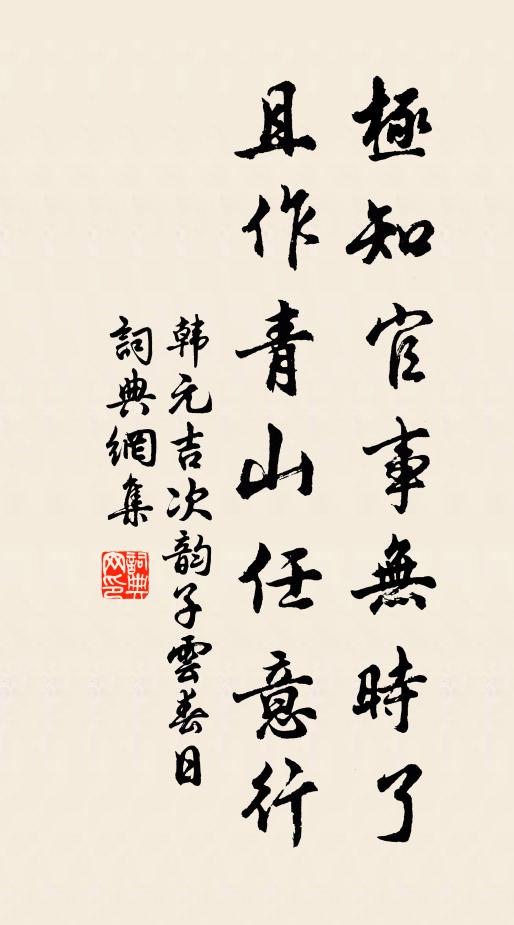 極知官事無時了
且作青山任意行
韩元吉次韵子雲春日
詞典網集
詞典
网印